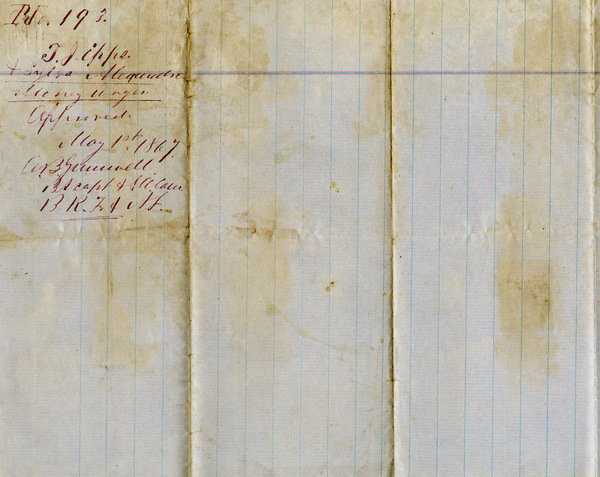 No. 193.
T. J. Epps.
& Sylva Alexander
Money wages
Approved.
May 1st 1867.
A. B. Grunwell
Bt Capt & S. A. Com
B. R. F. & A. L.